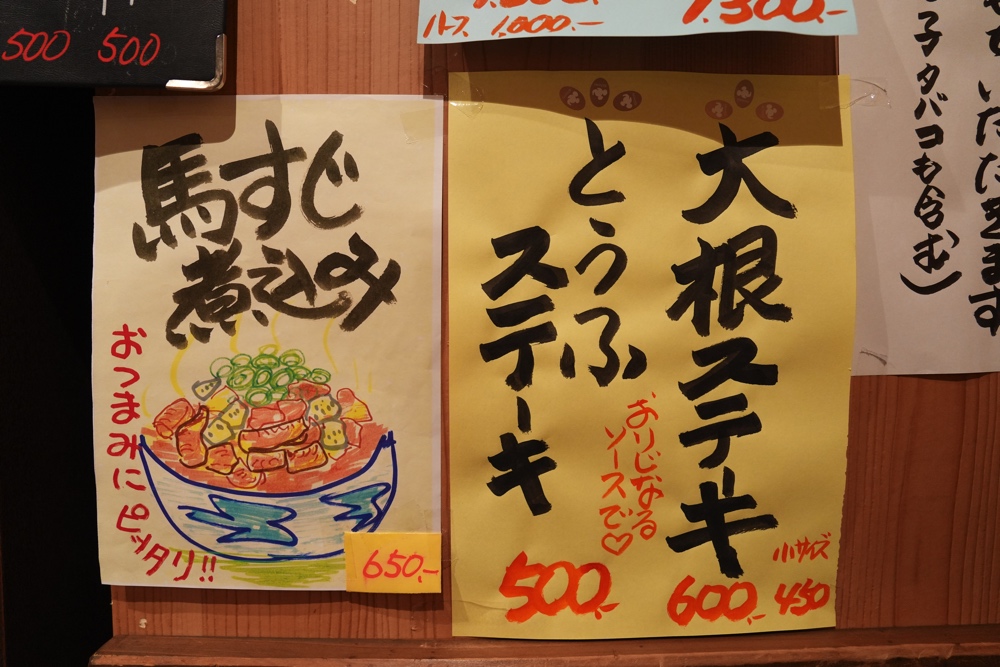 500 500
ハーフ 1,000.—
1,300.—
馬すじ
煮込み
おつまみに
ピッタリ!!
650.—
大根ステーキ
小サイズ
600.— 450
とうふ
ステーキ
おりじなる
ソースで♡
500.—
いただきます
子タバコも含む)